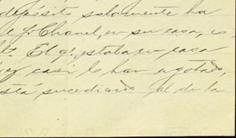 depósito solamente ha
Chanel, en su casa, co-
El qe. estaba en casa
casi lo han agotado,
está sucediendo de la